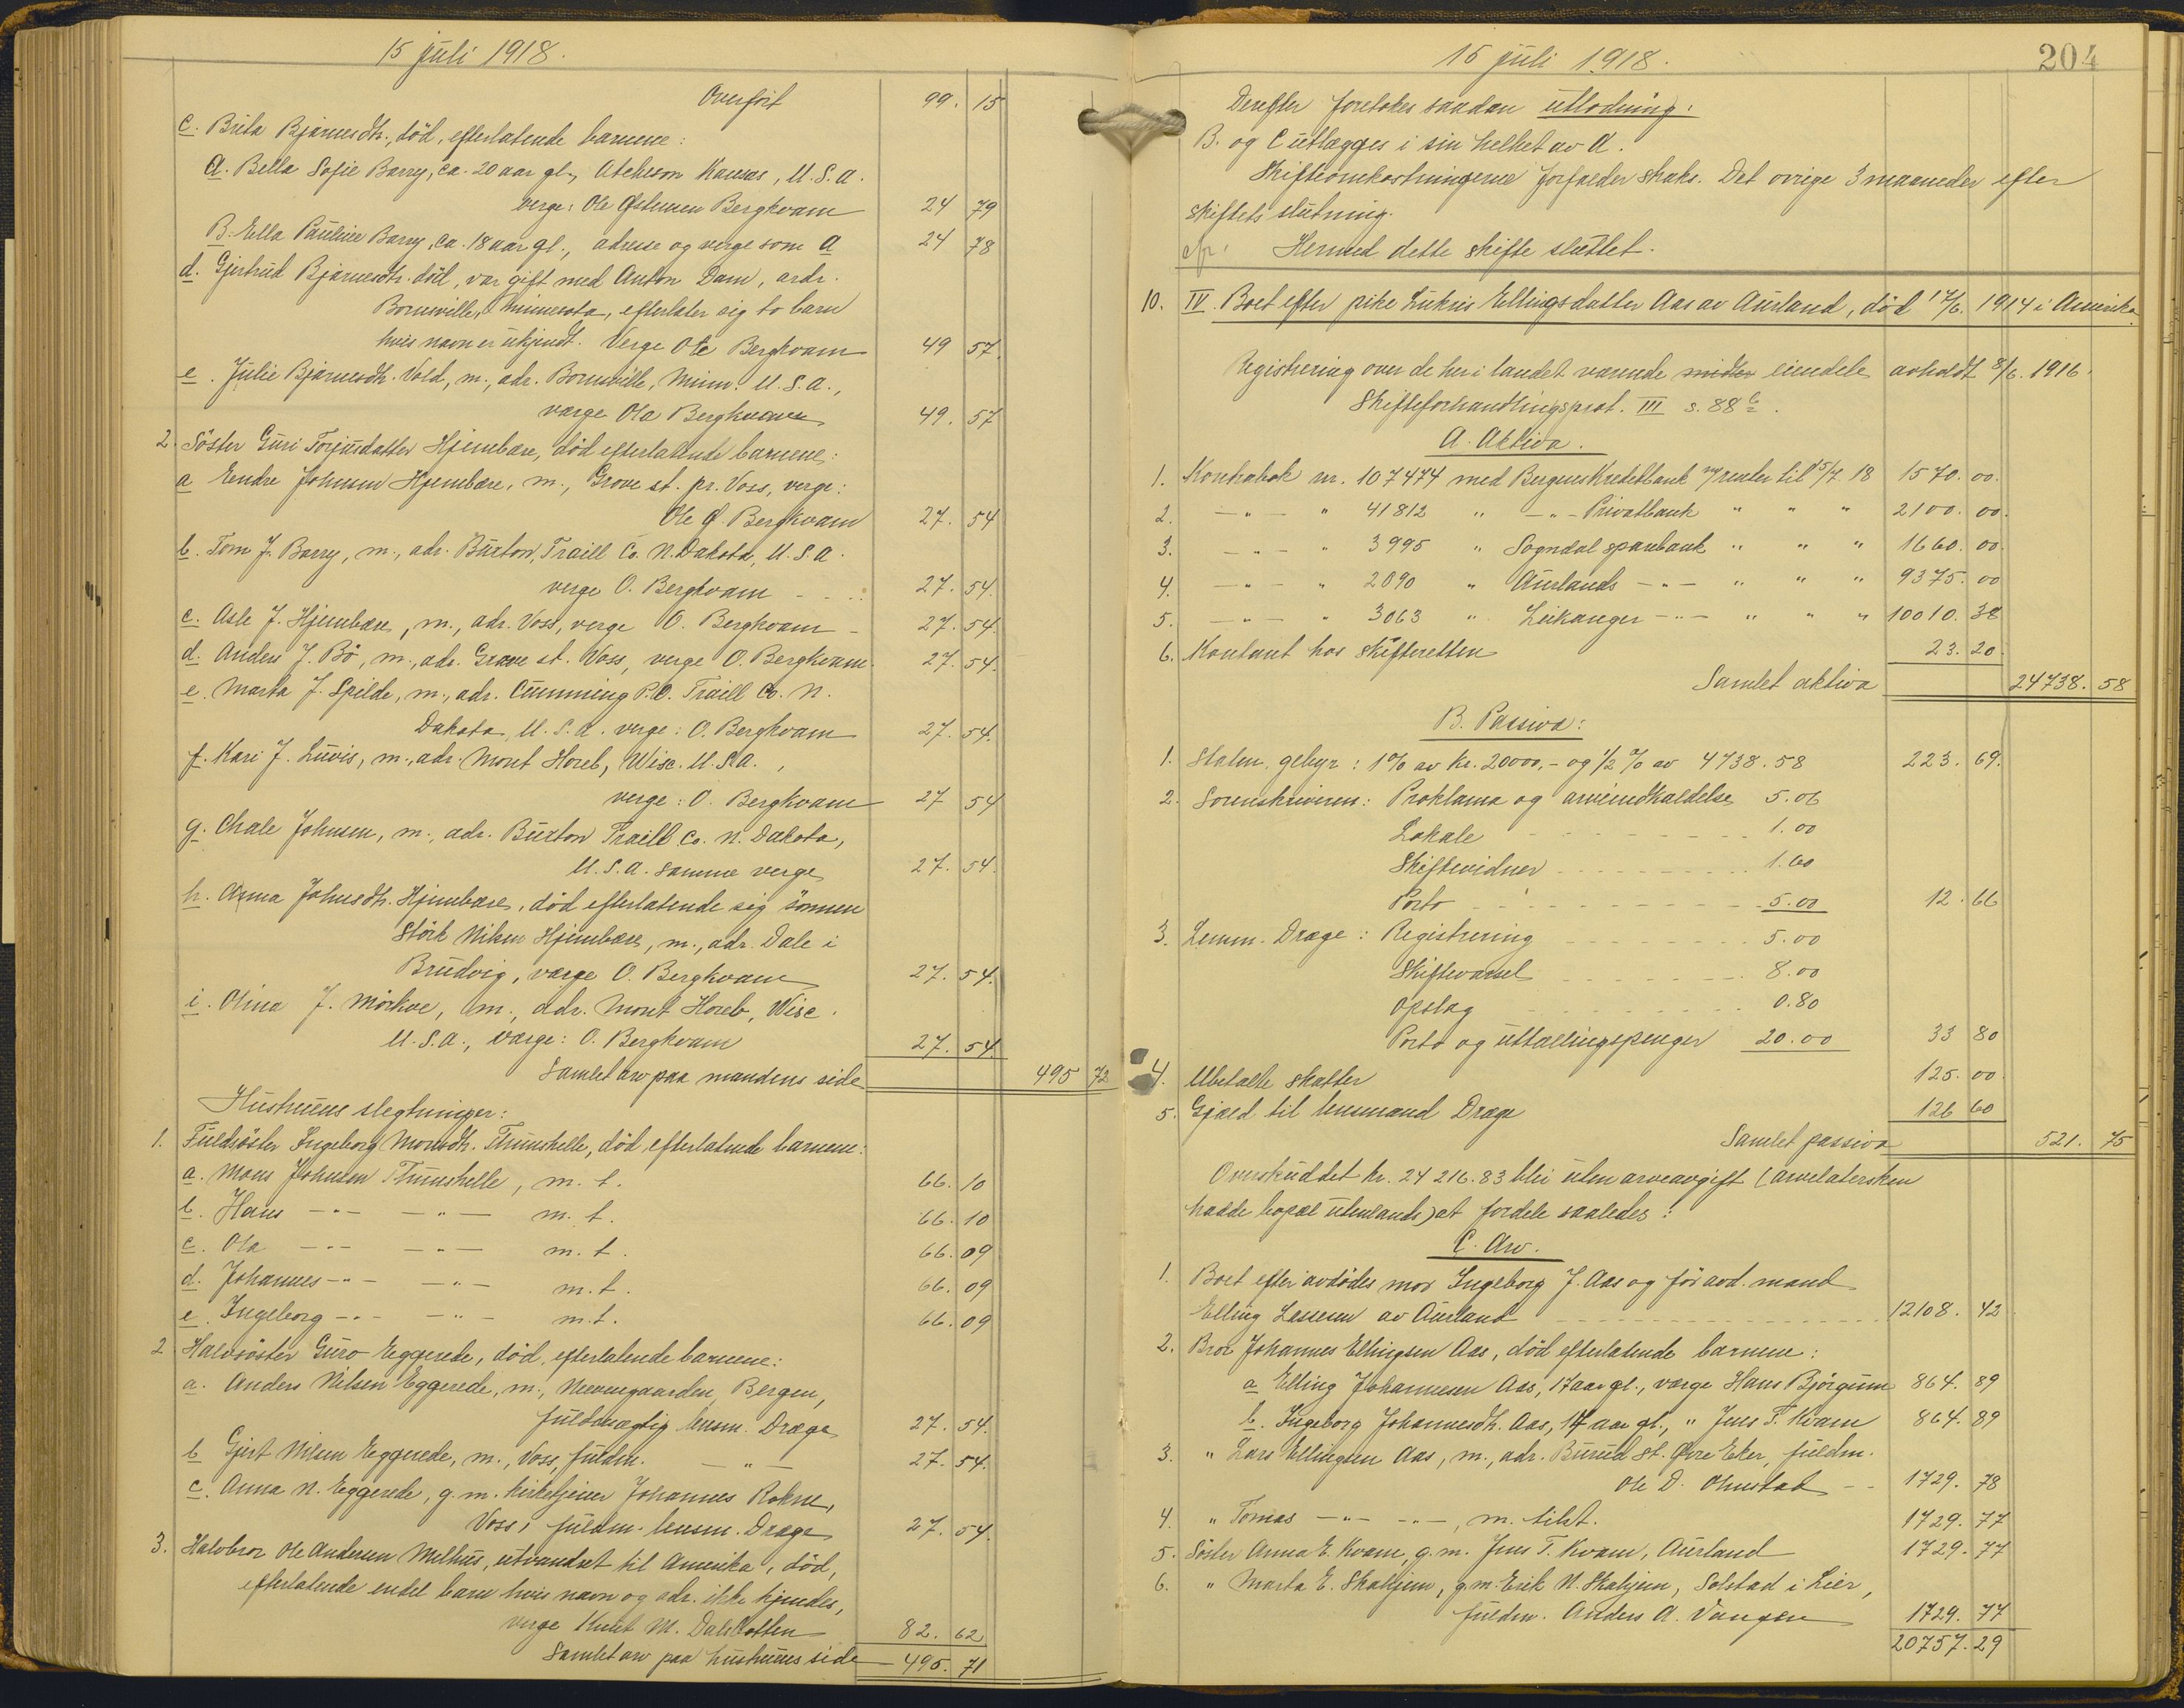 15 juli 1918.
Overført 99. 15
c. Brita Bjarnesdtr., död, efterlatende barnene:
A. Bella Sofie Barry, ca. 20 aar gl., Atcheson Kansas, U.S.A.
verge: Ole Østensen Bergkvam 24 79
B. Ella Pauline Barry, ca. 18 aar gl., adresse og verge som A 24 78
d. Gjertrud Bjarnesdtr. död, var gift med Anton Dam, adr.
Bornsville, Minnesota, efterlater sig to barn
hvis navn er ukjendt. Verge Ole Bergkvam 49 57.
e. Julie Bjarnesdtr. Vold, m., adr. Bornsville, Minn. U.S.A.,
værge Ola Bergkvam 49. 57
2. Söster Guri Torjusdatter Hjembære, död efterlatende barnene:
a Endre Johnsen Hjembære, m., Grove st. pr. Voss, verge:
Ole Ø. Bergkvam 27. 54
b. Tom J. Barry, m., adr. Buxton, Traill Co. N. Dakota, U.S.A.
verge O. Bergkvam 27. 54.
c. Asle J. Hjembære, m., adr. Voss, verge O. Bergkvam - 27. 54.
d. Anders J. Bö, m., adr. Grove st. Voss, verge O. Bergkvam. 27. 54.
e. Marta J. Spilde, m., adr. Cumming P.O. Traill Co. N.
Dakota, U.S.A. verge: O. Bergkvam 27. 54.
f. Kari J. Luvis, m., adr. Mont Horeb, Wisc. U.S.A.,
verge: O. Bergkvam 27 54
g. Chale Johnsen, m., adr. Buxton Traill Co. N. Dakota,
U.S.A. samme verge 27. 54.
h. Anna Johnsdtr. Hjembære, död efterlatende sig sönnen
Störk Nilsen Hjembære, m., adr. Dale i
Brudvig, værge O. Bergkvam 27. 54.
i. Olina J. Mörkve, m., adr. Mont Horeb, Wisc.
U.S.A., værge: O. Bergkvam 27. 54
Samlet arv paa mandens side 495 72
Hustruens slegtninger:
1. Fuldsöster Ingeborg Monsdtr. Thunshelle, död efterlatende barnene:
a. Mons Johnsen Thunshelle, m. t. 66. 10
b. Hans -"- -"- m. t. 66. 10
c. Ola -"- -"- m. t. 66. 09
d. Johannes -"- -"- m. t. 66. 09
e. Ingeborg -"- -"- m. t. 66. 09
2 Halvsöster Guro Eggerede, död, efterlatende barnene:
a. Anders Nilsen Eggerede, m., Bergen,
fuldmægtig lensm. Dræge 27. 54.
b Gjert Nilsen Eggerede, m., Voss, fuldm. -"- 27. 54.
c. Anna N. Eggerede, g. m. kirketjener Johannes Rokne,
Voss, fuldm. lensm. Dræge 27. 54.
3. Halvbror Ole Andersen Melhus, utvandret til Amerika, död,
efterlatende endel barn hvis navn og adr. ikke kjendes,
verge Knut M. 82. 62
Samlet arv paa hustruens side 495. 71
204
15 juli 1918.
Derefter foretokes saadan utlodning:
B. og C utlægges i sin helhet av A.
Skifteomkostningerne forfalder straks. Det övrige 3 maaneder efter
skiftets slutning.
Hermed dette skifte sluttet.
10. IV. Boet efter pike Lukris Ellingsdatter Aas av Aurland, död 17/6. 1914 i Amerika.
Registrering over de her i landet værende midler eiendele avholdt 8/6. 1916.
Skifteforhandlingsprot. III s. 88 b.
A. Aktiva.
1. Kontrabok nr. 107474 med Bergens Kreditbank m/ renter til 15/7. 18 1570. 00.
2. -"- " 41812 " -"- Privatbank " " " 2100. 00.
3. -"- " 3995 " Sogndal sparebank " " " 1660. 00.
4. -"- " 2090 " Aurlands -"- " " " 9375. 00
5. -"- " 3063 " Leikanger -"- " " " 10010. 38
6. Kontant hos skifteretten 23. 20
Samlet aktiva 24738. 58
B. Passiva:
1. Staten. gebyr: 1% av kr. 20000,- og 1/2 % av 4738. 58 223. 69.
2. Sorenskriveren: Proklama og arveindkaldelse 5. 06
Lokale 1. 00
Skiftevidner 1. 60
Porto 5. 00 12. 66
3. Lensm. Dræge: Registrering 5. 00
Skiftevarsel 8. 00
Opslag 0. 80
Porto og uttællingspenger 20. 00 33 80
4. Ubetalte skatter 125. 00
5. Gjæld til lensmand Dræge 126 60
Samlet passiva 521. 75
Overskuddet kr. 24 216. 83 blir uten arveavgift (arvelatersken
hadde bopæl utenlands) at fordele saaledes:
C. Arv.
1. Boet efter avdödes mor Ingeborg J. Aas og för avd. mand
Elling Lassesen av Aurland 12108. 42
2. Bror Johannes Ellingsen Aas, död efterlatende barnene:
a Elling Johannesen Aas, 17 aar gl., værge Hans Björgum 864. 89
b. Ingeborg Johannesdtr. Aas, 14 aar gl., " Jens T. Kvam 864. 89
3. " Lars Ellingsen Aas, m., adr. Burud st. Øvre Eker, fuldm.
Ole D. Ohnstad -- 1729. 78
4. " Tomas -"- -"-, m. tilst. 1729. 77
5. Söster Anna E. Kvam, g. m. Jens T. Kvam, Aurland 1729. 77
6. " Marta E. Skahjem, g. m. Erik N. Skahjem, Solstad i Lier,
fuldm. Anders A. Vangen 1729. 77
20757. 29